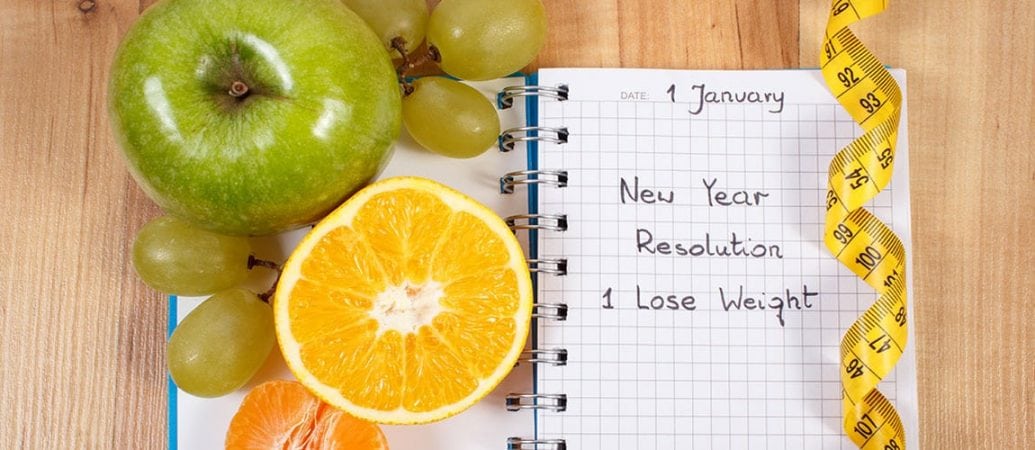 DATE: 1 January
New Year
Resolution
1 Lose Weight
91
92
93
54
55
99
100
101
48
47
46
107
108